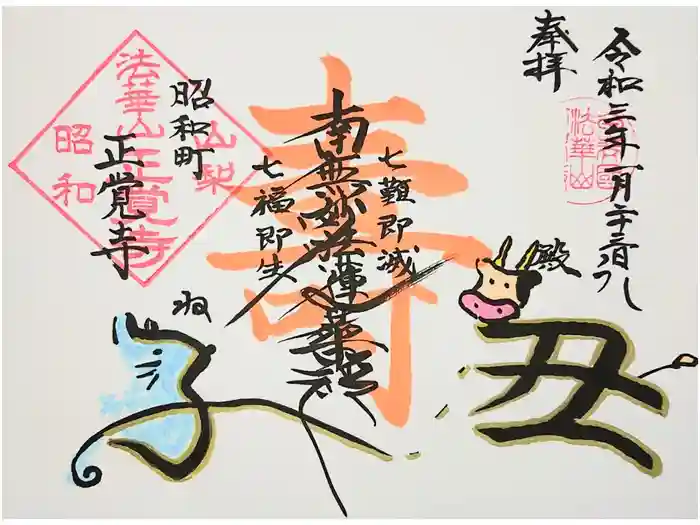 奉拝
令和三年一月二十二日
殿
寿
七難即滅
南無妙法蓮華経
七福即生
昭和町
正覚寺
山梨
法華山正覚寺
昭和
法華山
ね
子
丑